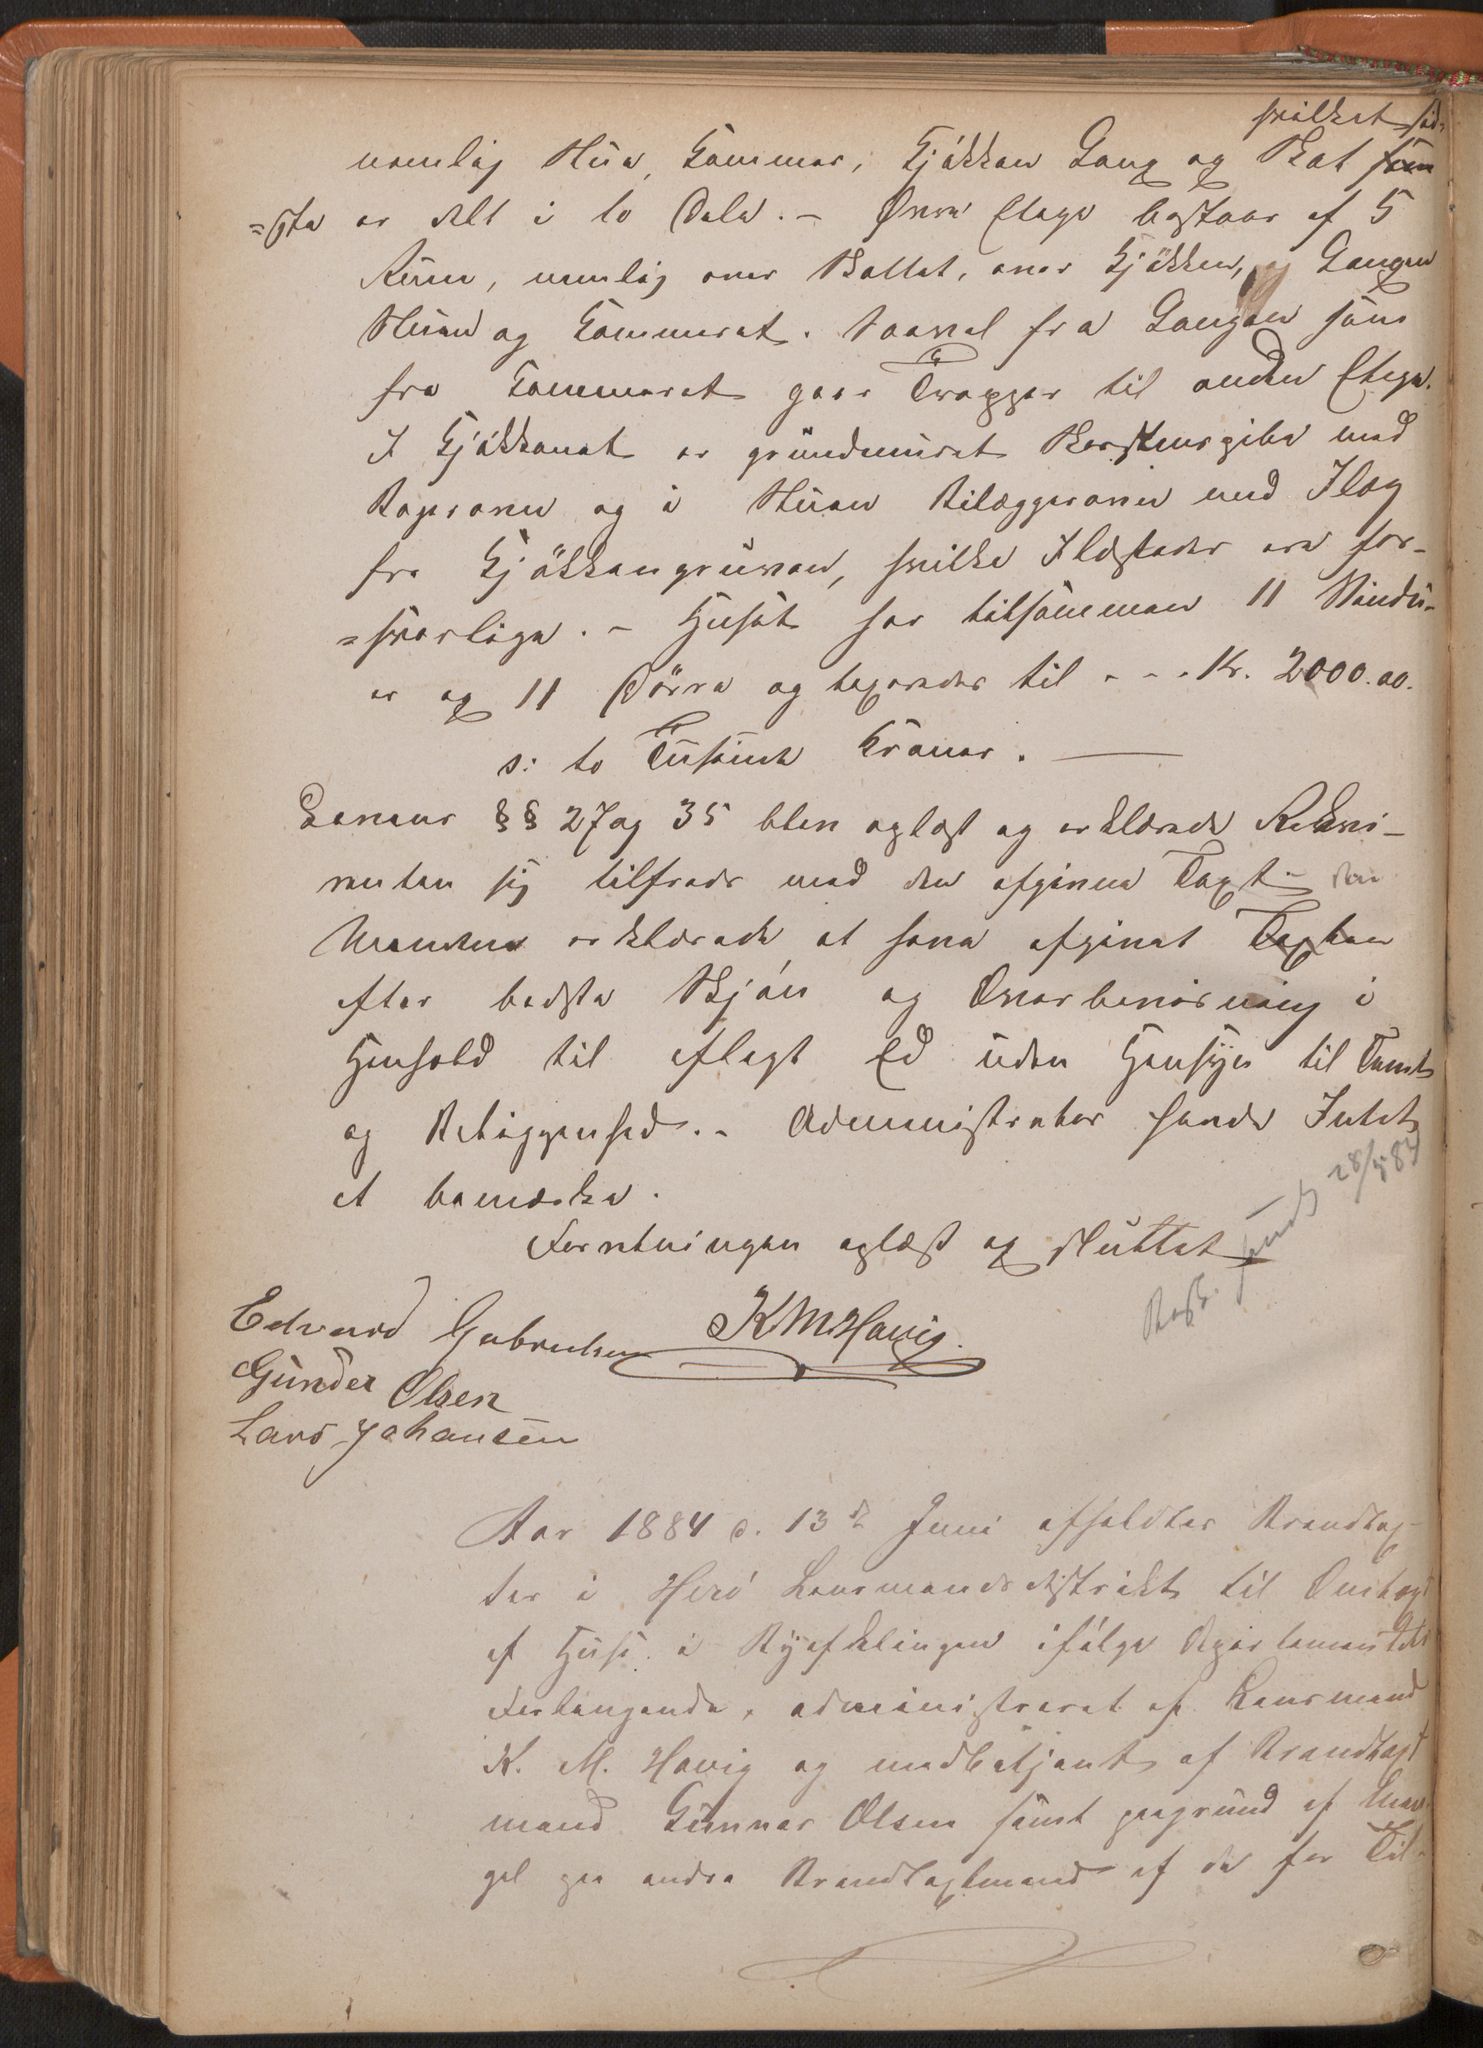 hvilket sid-
nemlig Stue, Kammer, Kjøkken Gang og Skot som
=ste er delt i to Dele. - Øvre Etage bestaar af 5
Rum, nemlig over Skottet, over Kjøkken, og Gangen
Stuen og Kammeret. Saavel fra Gangen som
fra Kammeret gaar Trapper til anden Etage.
I Kjøkkenet er grundmuret Skorstenspibe med
Bagerovn og i Stuen Bilæggerovn med Ilæg
fra Kjøkkengruven, hvilke Ildsteder ere for-
=svarlige. - Huset har tilsammen 11 Vindu-
er og 11 Dørre og taxeredes til - - - Kr. 2000.00.
s: to Tusinde Kroner. -
Lovens §§ 27 og 35 blev oplæst og erklærede Rekvi-
renten sig tilfreds med den afgivne Taxt -
Mændene erklærede at have afgivet Taxten
efter bedste Skjøn og Overbevisning i
Henhold til aflagt Ed uden Hensyn til Venskab
og Rebiggenhed. - Administrator havde Intet
at bemærke.
Forretningen oplæst og sluttet
Besk. sendt 28/5 84
Edvard Gabrielsen K M Havig
Gunder Olsen
Lars Johansen
Aar 1884 d. 13de Juni afholdtes Brandtax-
ter i Herø Lensmandsdistrikt til Omtaxt
af Huse i Byafdelingen ifølge Departementets
Forlangende, administreret af Lensmand
K. M. Havig og medbetjent af Brandtaxt
mand Gunnar Olsen samt paagrund af Man-
gel paa andre Brandtaxtmænd af de for Til-